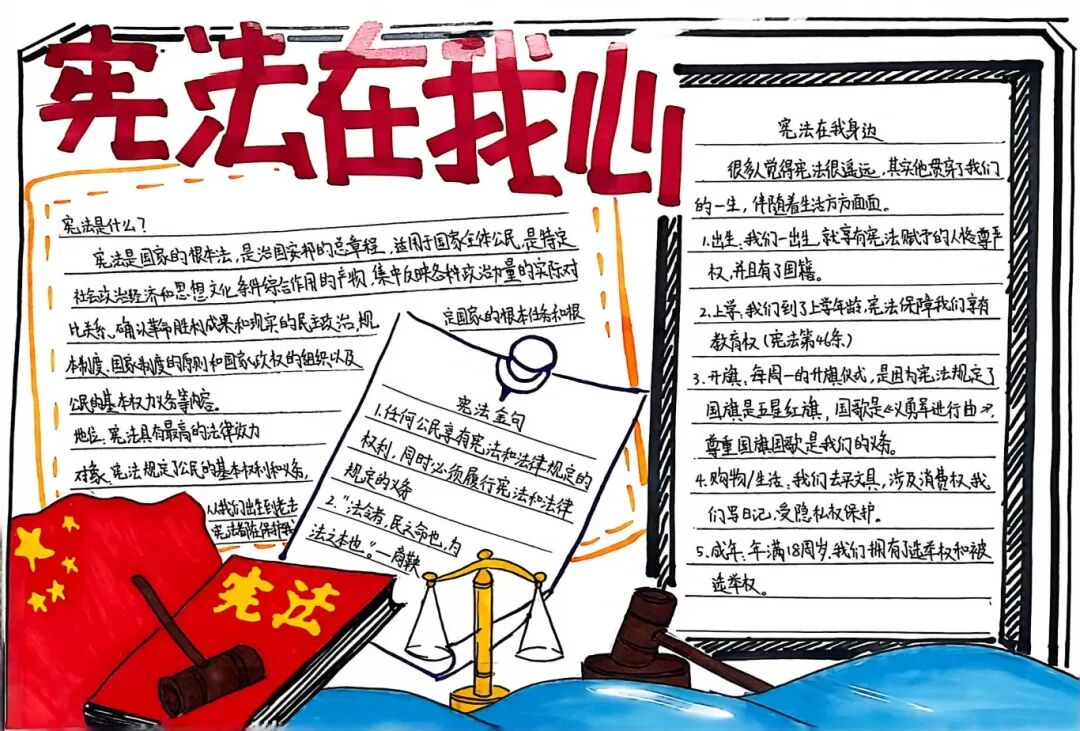 宪法在我心
宪法是什么?
宪法是国家的根本法,是治国安邦的总章程,适用于国家全体公民,是特定
社会政治经济和思想文化条件综合作用的产物,集中反映各种政治力量的实际对
比关系,确认革命胜利成果和现实的民主政治,规
定国家的根本任务和根
本制度、国家制度的原则和国家政权的组织以及
公民的基本权力义务等内容。
地位:宪法具有最高的法律效力
对象:宪法规定了公民的基本权利和义务,
从我们出生到老去
宪法都在保护我
宪法金句
1.任何公民享有宪法和法律规定的
权利,同时必须履行宪法和法律
规定的义务
2.“法令者,民之命也,为
治之本也。”—商鞅
宪法
宪法在我身边
很多人觉得宪法很遥远,其实他贯穿了我们
的一生,伴随着生活方方面面。
1.出生:我们一出生,就享有宪法赋予的人格尊严
权,并且有了国籍。
2.上学:我们到了上学年龄,宪法保障我们享有
教育权(宪法第46条)
3.升旗:每周一的升旗仪式,是因为宪法规定了
国旗是五星红旗,国歌是《义勇军进行曲》,
尊重国旗国歌是我们的义务。
4.购物/生活:我们去买文具,涉及消费权,我
们写日记,受隐私权保护。
5.成年:年满18周岁,我们拥有了选举权和被
选举权。